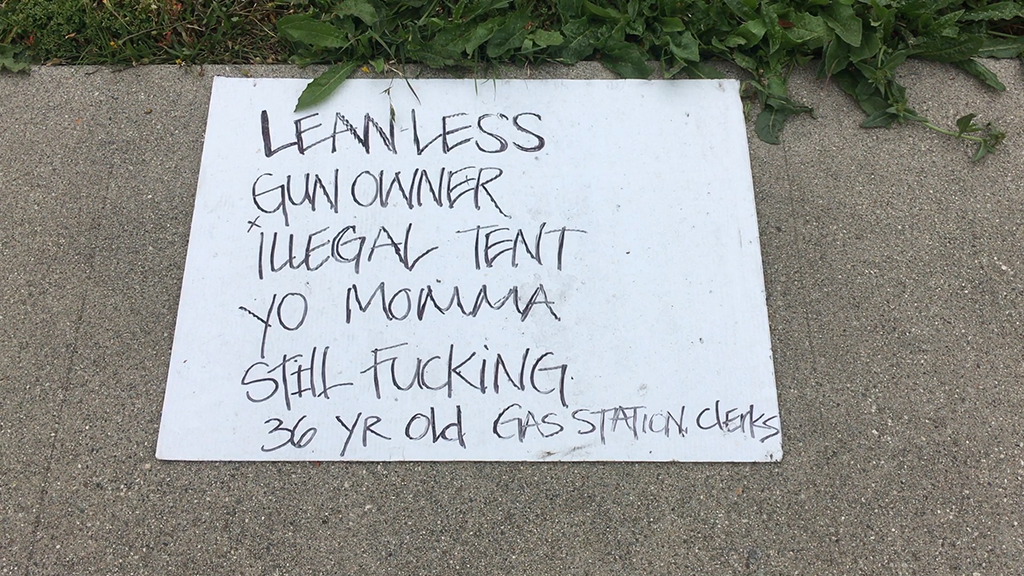 LEAN-LESS
GUN OWNER
ILLEGAL TENT
YO MOMMA
STILL FUCKING
36 YR Old GAS STATION. Clerks